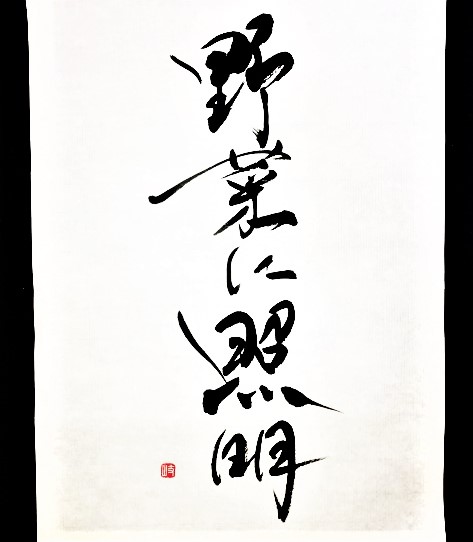 野菜に照明